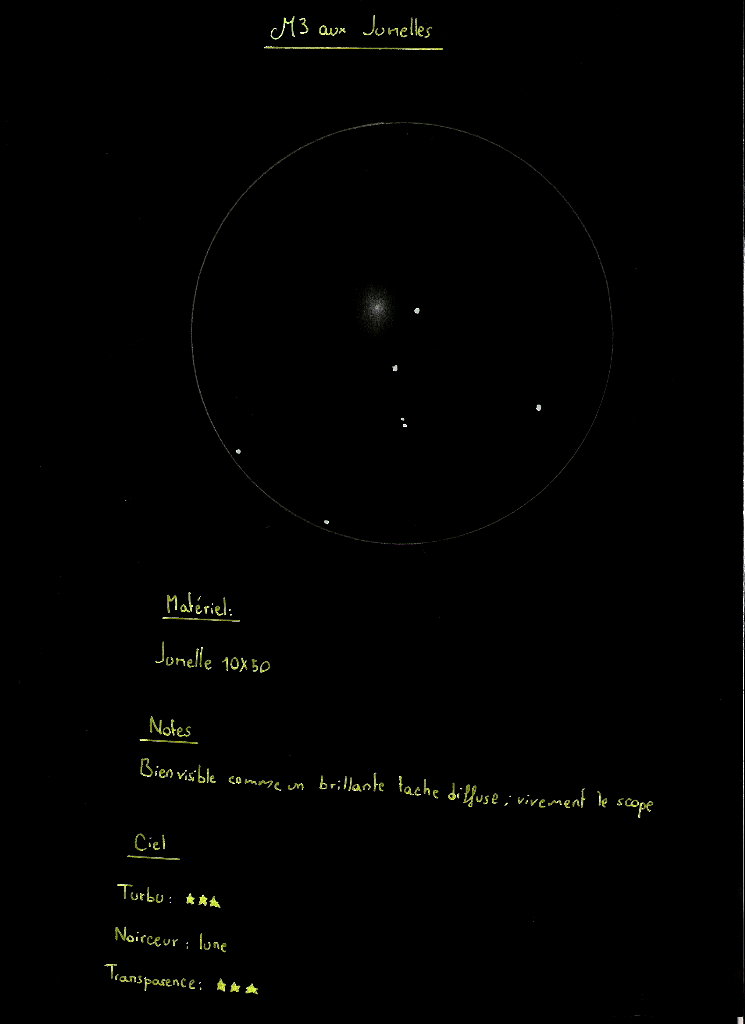 M3 aux Jumelles
Matériel:
Jumelle 10X50
Notes
Bien visible comme un brillante tache diffuse ; vivement le scope
Ciel
Turbu : ★★★
Noirceur : lune
Transparence : ★★★